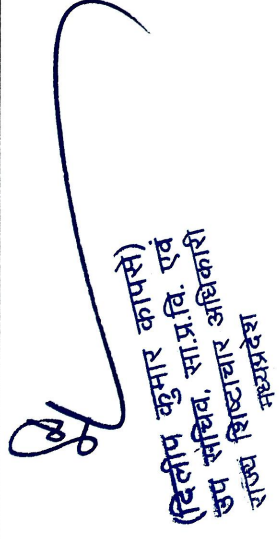 (दिलीप कुमार कापसे)
उप सचिव, सा.प्र.वि. एवं
राज्य शिष्टाचार अधिकारी
मध्यप्रदेश